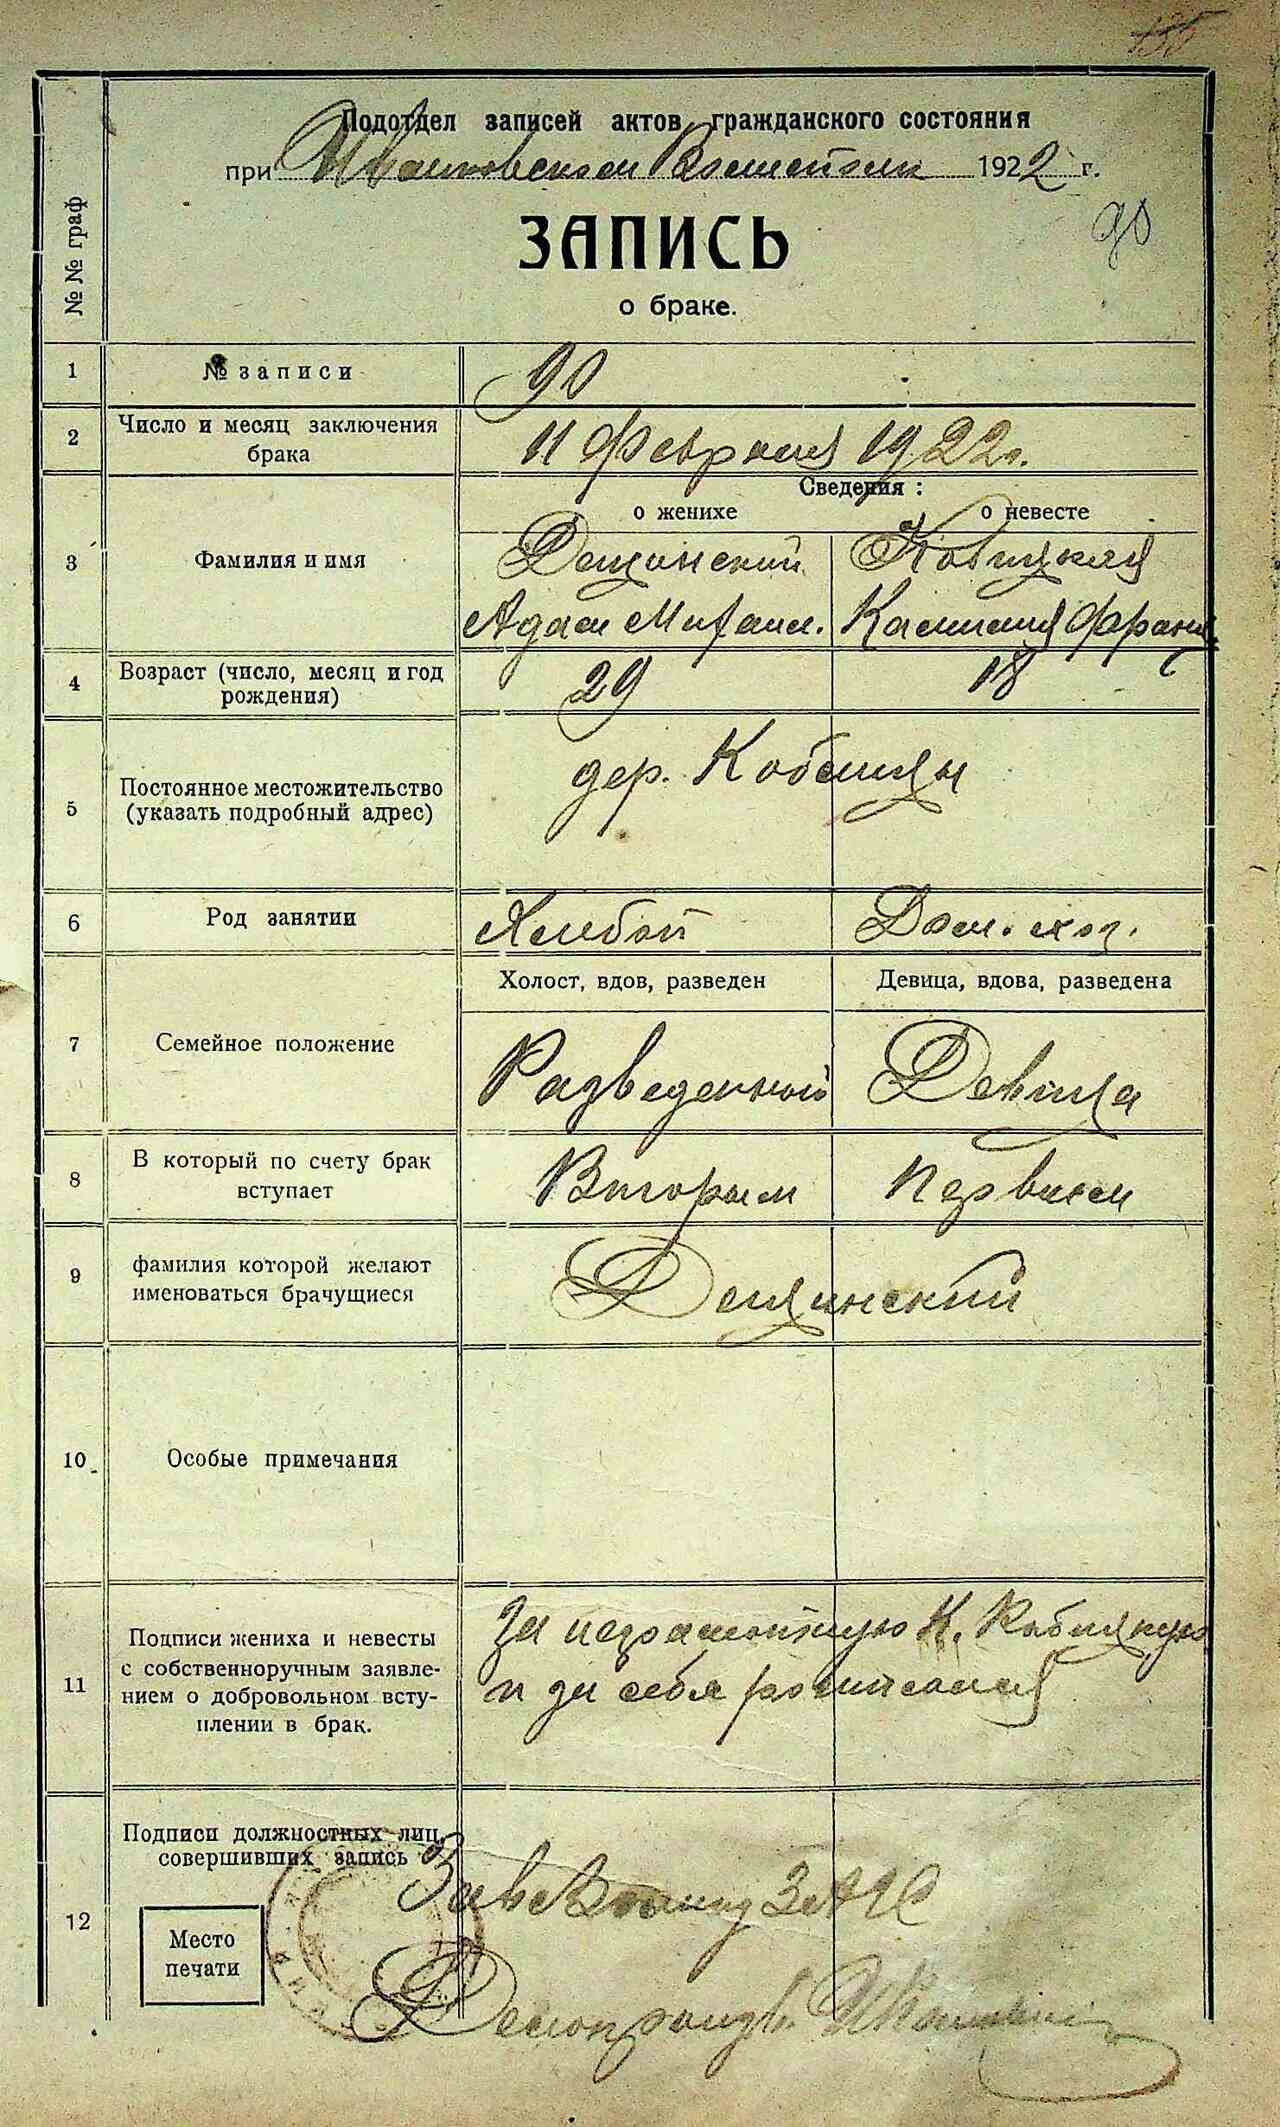 135
Подотдел записей актов гражданского состояния
при Ивановском 1922 г.
90
ЗАПИСЬ
о браке.
№№ граф
1 № записи 90
2 Число и месяц заключения брака 11 Февраля 1922 г.
Сведения:
о женихе о невесте
3 Фамилия и имя
Дещинский
Адам Михаил. Камилия Франц
4 Возраст (число, месяц и год рождения) 29 18
5 Постоянное местожительство (указать подробный адрес) дер.
6 Род занятии Хлебоп Дом. хоз.
Холост, вдов, разведен Девица, вдова, разведена
7 Семейное положение Разведенный Девица
8 В который по счету брак вступает Вторым Первым
9 фамилия которой желают именоваться брачущиеся Дещинский
10 Особые примечания
11 Подписи жениха и невесты с собственноручным заявлением о добровольном вступлении в брак.
За неграмотную К.
и за себя росписался
12 Подписи должностных лиц, совершивших запись
Зав ЗАГС
Место печати
Делопроизв.